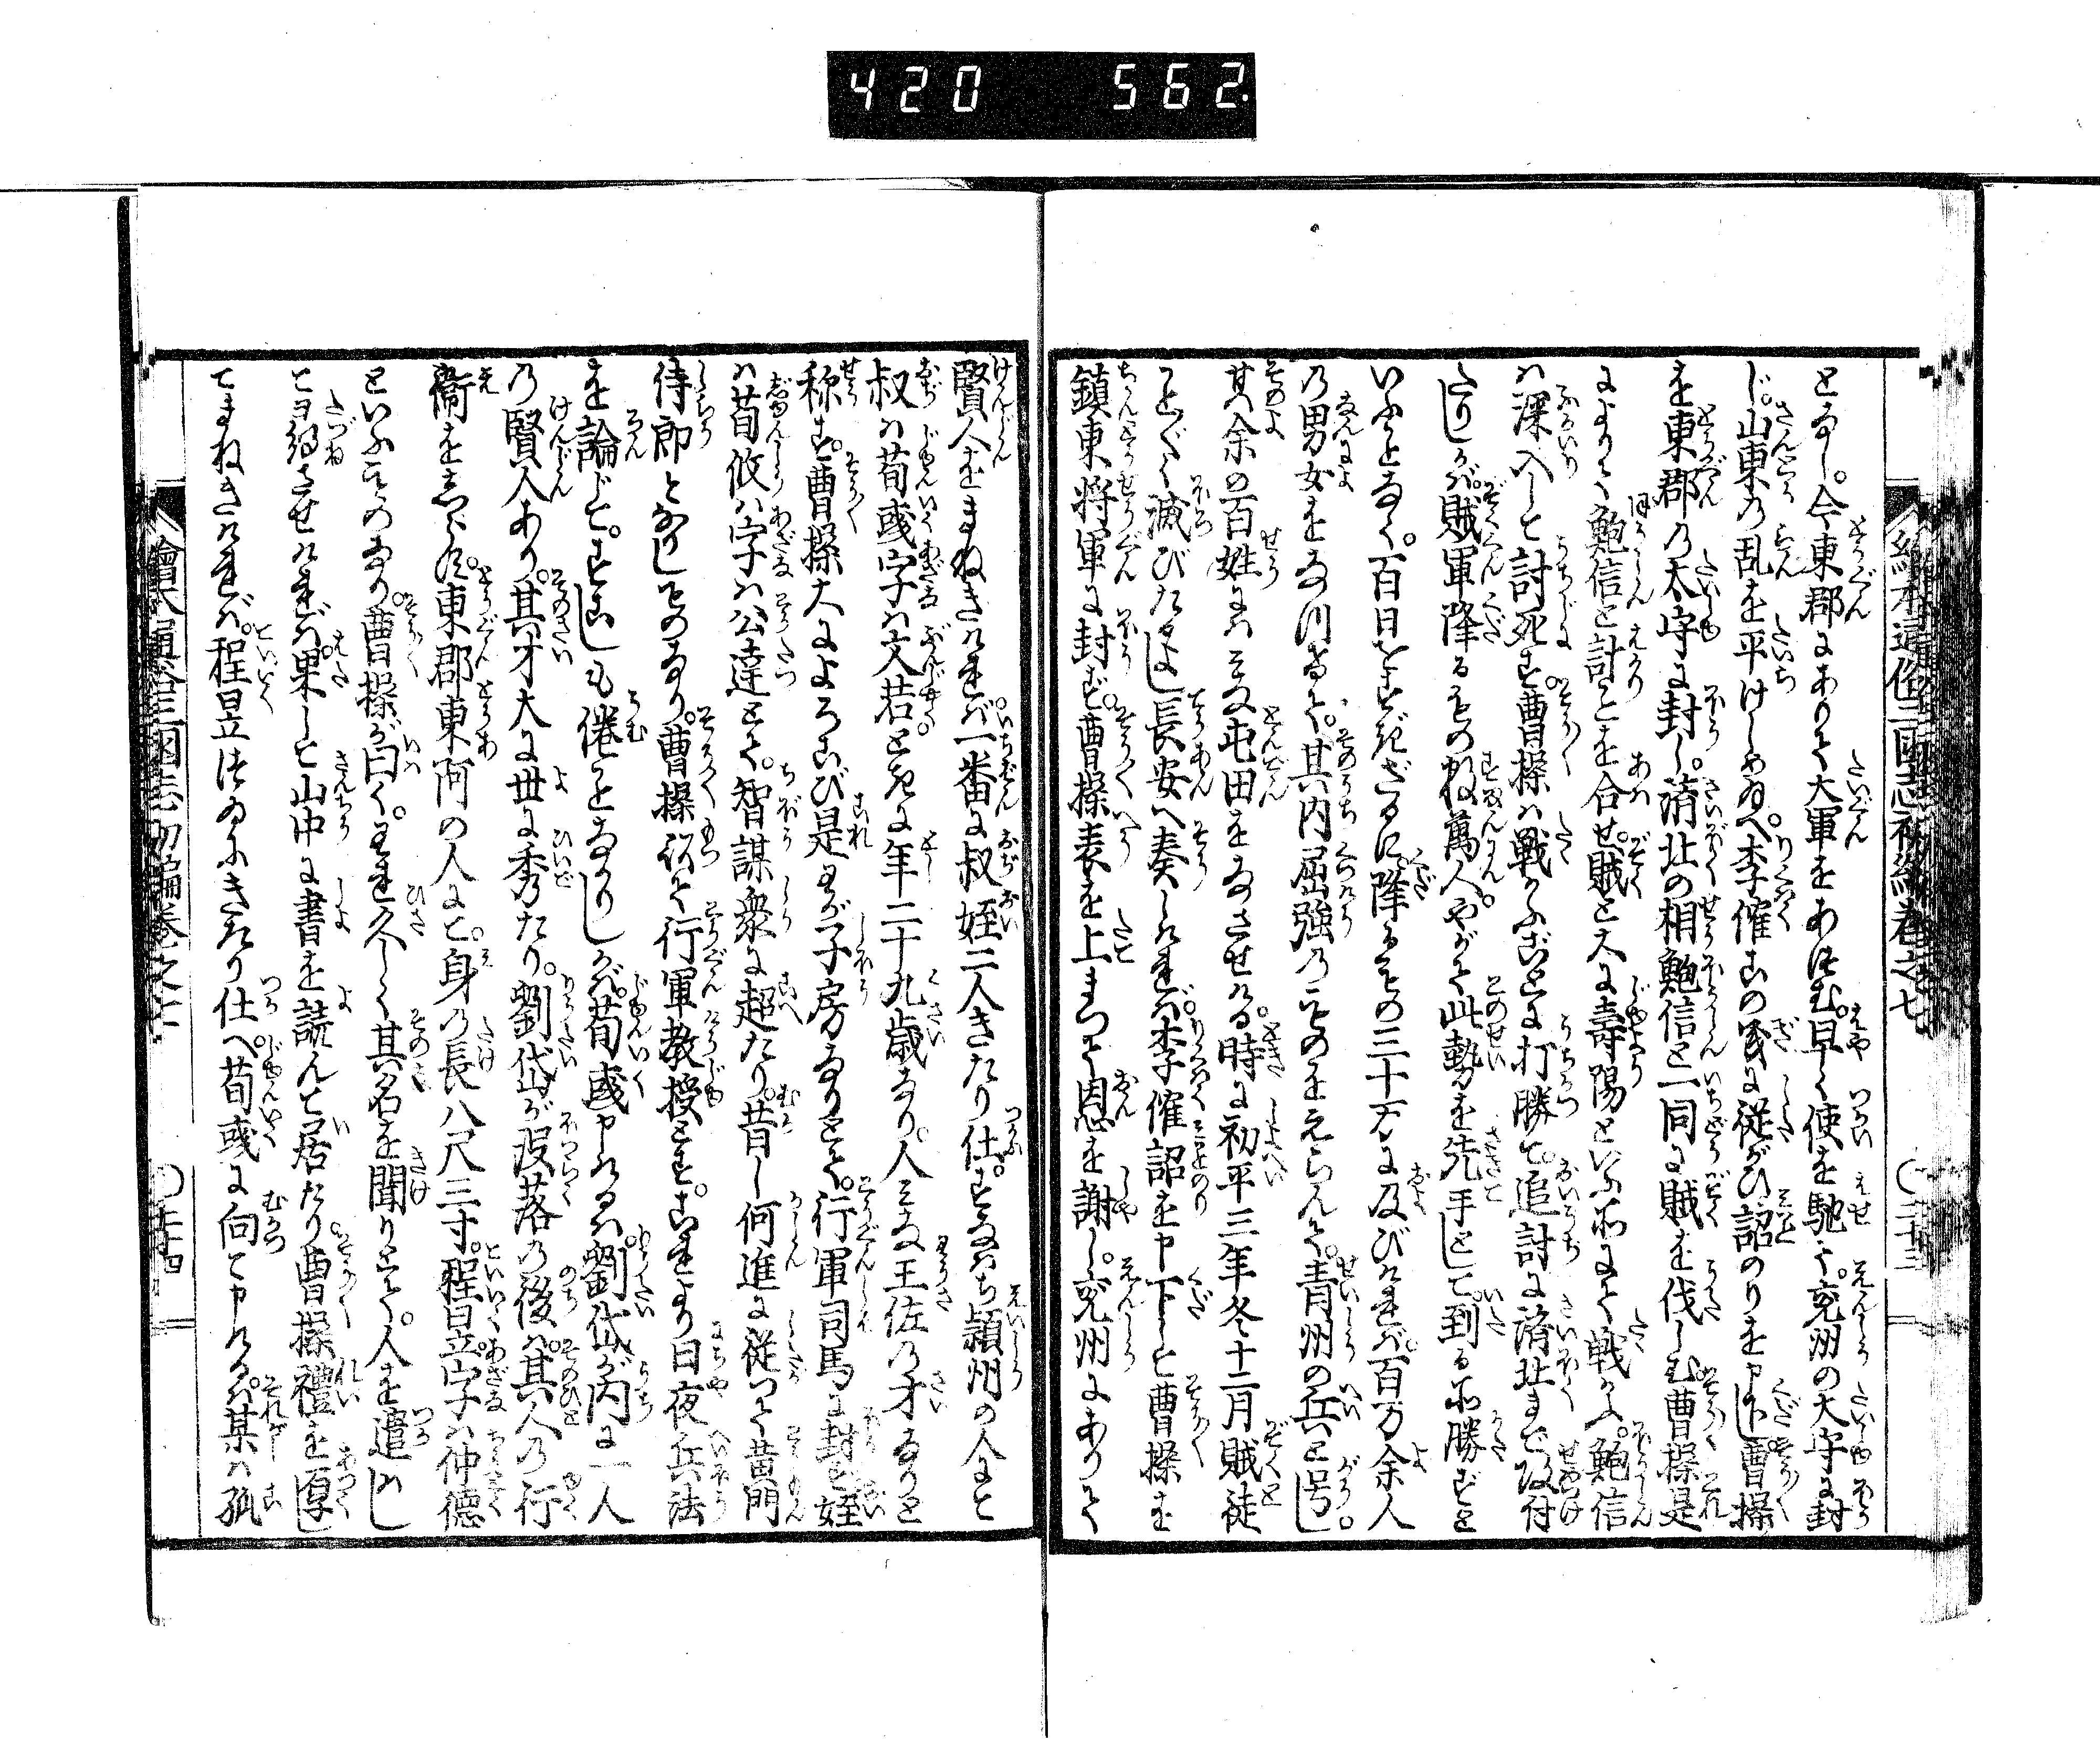 420 562.
となし。今東郡にありて大軍をあつむ。早く使を馳て。兗州の大守に封
じ。山東の乱を平けしめ給へ李傕この義に従がひ詔のりを申下し曹操
を東郡の太守に封し。済北の相鮑信と一同に賊を伐しむ曹操是
によりて鮑信と計ことを合せ。賊と大に壽陽といふ所にて戦かふ。鮑信
ハ深入して討死す。曹操ハ戦かふごとに打勝て。追討に済北まで攻付
たりしかバ。賊軍降るもの数萬人。やがて此勢を先手として。到る所勝ずと
いふことなく。百日をすぎざるに。降るもの三十万に及びけれバ。百万余人
の男女をなづけて。其内屈強のものをえらんで。青州の兵と号し
其余の百姓にハミな屯田をなさせける。時に初平三年冬十二月賊徒
ことごとく滅びたるよし長安へ奏しけれバ。李傕詔を申下して曹操を
鎮東将軍に封ず。曹操表を上まつて恩を謝し。兗州にありて
賢人をまねきけれバ。一番に叔姪二人きたり仕ふ。すなハち潁州の人にて
叔ハ荀彧字ハ文若とて年二十九歳なり。人ミな王佐の才なりと
称す。曹操大によろこび是わが子房なりとて。行軍司馬に封ず姪
ハ荀攸ハ字ハ公達とて。智謀衆に超たり。昔し何進に従つて黄門
侍郎となりしものなり。曹操以て行軍教授とす。これより日夜兵法
を論じて。すこしも倦ことなかりしかバ。荀彧申けるハ劉岱が内に一人
の賢人あり。其才大に世に秀たり。劉岱が没落の後ハ。其人の行
衛をしらず。東郡東阿の人にて。身の長八尺三寸。程昱。字ハ仲徳
といふものなり。曹操が曰く。われ久しく其名を聞りとて。人を遣ハし
たづねさせけれバ。果して山中に書を読んで居たり曹操禮を厚し
てまねきけれバ。程昱つゐにきたり仕へ。荀彧に向つて申けるハ。某ハ孤